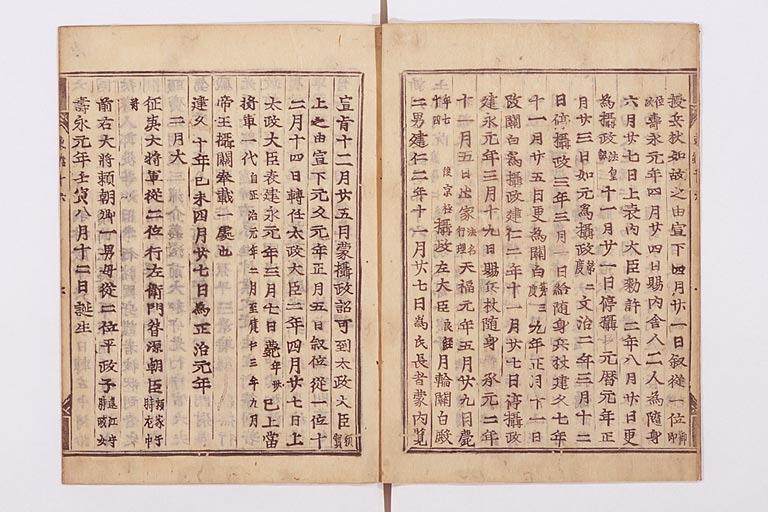 授兵仗如故之由宣下四月廿一日叙從一位
壽永元年四月廿四日賜内舍人二人為隨身
六月廿七日上表内大臣勅許二年八月廿日更
為攝政法皇詔十一月廿一日停攝元暦元年正
月廿三日如元為攝政第二度文治二年三月十二
日停攝政三年三月一日給隨身兵仗建久七年
十一月廿五日更為關白第三度九年正月十一日
改關白為攝政建仁二年十一月廿七日停攝政
建永元年三月十九日賜兵杖隨身承元二年
十一月五日出家法名行理天福元年五月廿九日薨
年七十四後京極攝政左大臣良經月輪關白殿
二男建仁二年十一月廿七日為氏長者蒙内覧
宣旨十二月廿五日蒙攝政詔可到太政大臣頼實
上之由宣下元久元年正月五日叙位從一位十
二月十四日轉任太政大臣二年四月廿七日上
太政大臣表建永元年三月七日薨年卅已上當
將軍一代自正治元年二月至建仁三年九月
帝王攝關奉載一處也
建久十年己未四月廿七日為正治元年
二月大
征夷大將軍從二位行左衛門督源朝臣頼家于時左中將
前右大將頼朝卿一男母從二位平政子遠江守時政女
壽永元年壬寅八月十二日誕生
東鑑十六